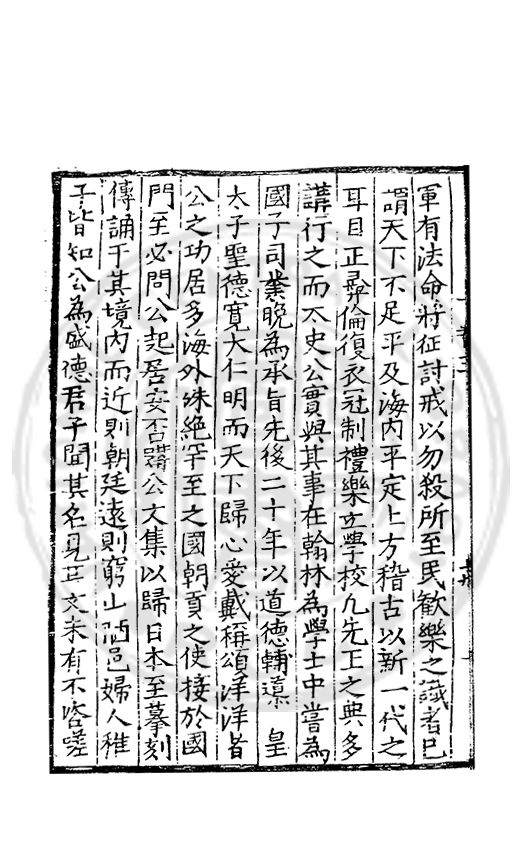 軍有法命將征討戒以勿殺所至民歡樂之識者已
謂天下不足平及海內平定上方稽古以新一代之
耳目正彛倫復衣冠制禮樂立學校凡先王之典多
講行之而太史公實與其事在翰林為學士中嘗為
國子司業晚為承旨先後二十年以道德輔導 皇
太子聖德寬大仁明而天下歸心愛戴稱頌洋洋者
公之功居多海外殊絕罕至之國朝貢之使接於國
門至必問公起居安否購公文集以歸日本至摹刻
傳誦于其境內而近則朝廷遠則窮山陋邑婦人稚
子皆知公為盛德君子聞其名見其文未有不咨嗟